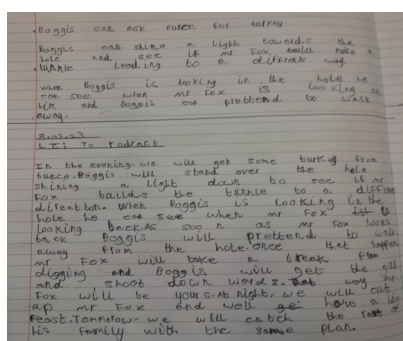 .Boggis can ask bunce for turkey.
Boggis can shine a light towards the
hole and see if mr Fox will make a
tunnle leading to a diffrent way.
when Boggis is looking in the hole he
can see when mr Fox is looking at
him and Boggis can prettend to walk
away.
8.02.23
LI: To redraft
In the evening. we will get some turkey from
bunce. Boggis will stand over the hole
shining a light down to see if mr
Fox builds the tunnle to a diffre
direction. When Boggis is looking in the
hole he can see when mr Fox is
looking back. As soon as mr Fox looks
back Boggis will prettend to walk
away from the hole. once that happens
mr Fox will take a break from
digging and Boggis will get the
and shoot down words. that way mr
Fox will be yours. At night, we will cut
up mr Fox and well have a big
feast. Tommorow. we will catch the rest of
his family with the same plan.